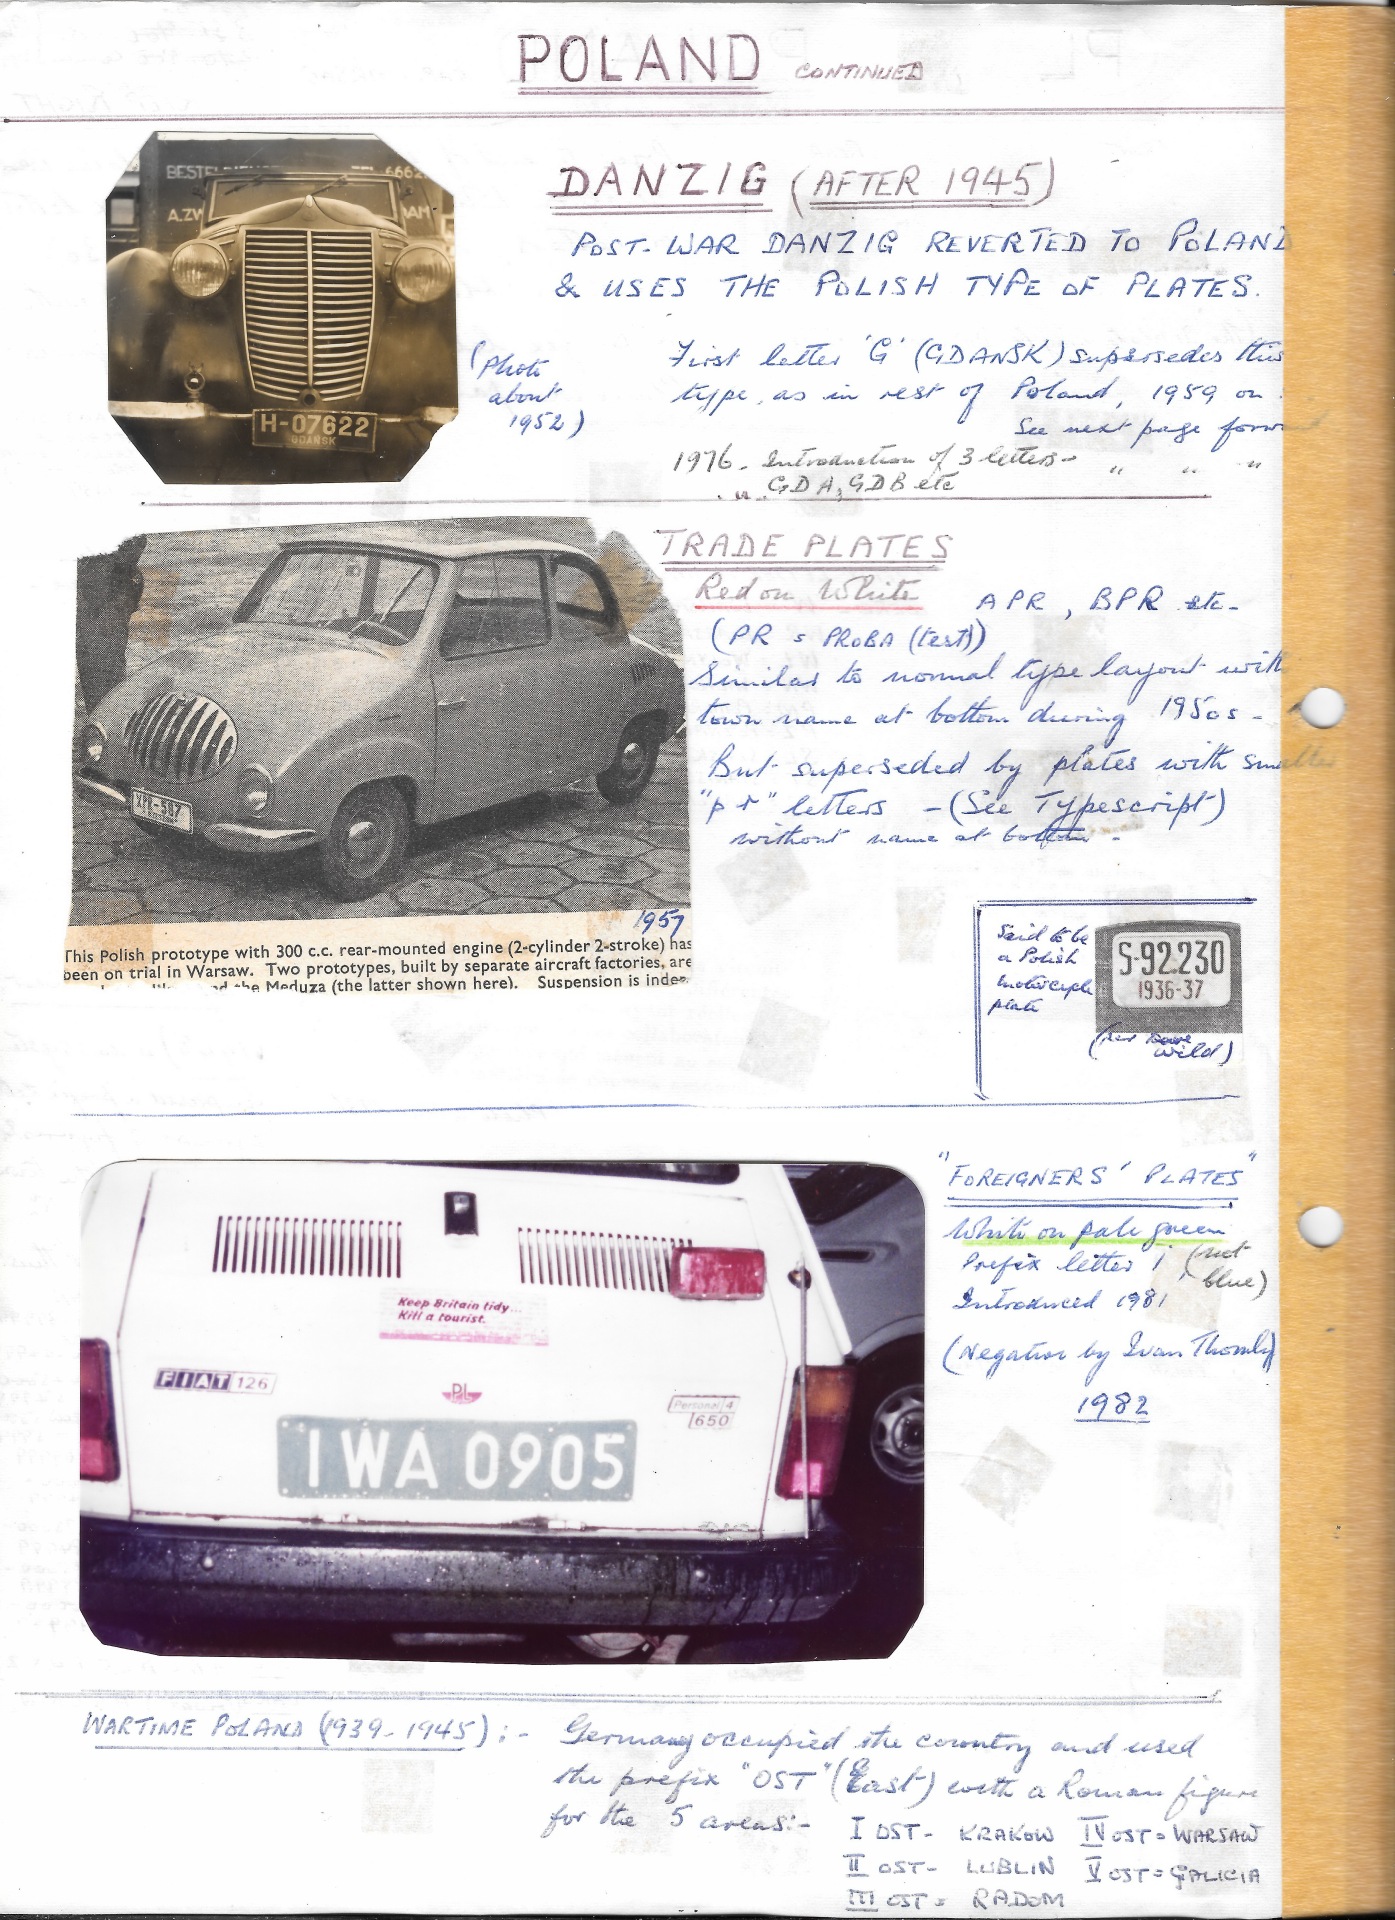 POLAND CONTINUED
DANZIG (AFTER 1945)
POST-WAR DANZIG REVERTED TO POLAND
& USES THE POLISH TYPE OF PLATES.
First letter 'G' (GDANSK) supersedes this
type, as in rest of Poland, 1959 on.
See next page forw
1976 - Introduction of 3 letters - " " "
GDA, GDB etc
BESTEL TEL. 6662
A.ZW DAM
H-07622
GDAŃSK
(Photo
about
1952)
TRADE PLATES
Red on White APR, BPR etc-
(PR = PROBA (test))
Similar to normal type layout with
town name at bottom during 1950s -
But superseded by plates with smaller
"pr" letters - (See Typescript)
without name at bottom -
XPR-587
1957
This Polish prototype with 300 c.c. rear-mounted engine (2-cylinder 2-stroke) has
been on trial in Warsaw. Two prototypes, built by separate aircraft factories, are
the Meduza (the latter shown here). Suspension is indep
Said to be
a Polish
motorcycle
plate
S-92.230
1936-37
wild)
"FOREIGNERS' PLATES"
White on pale green
Prefix letter i (not
blue)
Introduced 1981
(Negative by Ivan Thornley
1982
Keep Britain tidy...
Kill a tourist.
FIAT 126
PL
Personal 4
650
IWA 0905
WARTIME POLAND (1939-1945) :- Germany occupied the country and used
the prefix "OST" (East) with a Roman figure
for the 5 areas:-
I OST - KRAKOW IV OST = WARSAW
II OST - LUBLIN V OST = GALICIA
III OST = RADOM